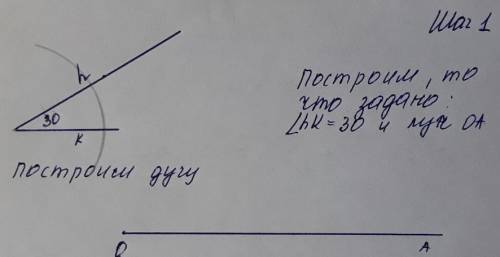 Шаг 1
Построим, то
что задано:
∠hk=30 и луч OA
h
30
k
Построим дугу
O
A